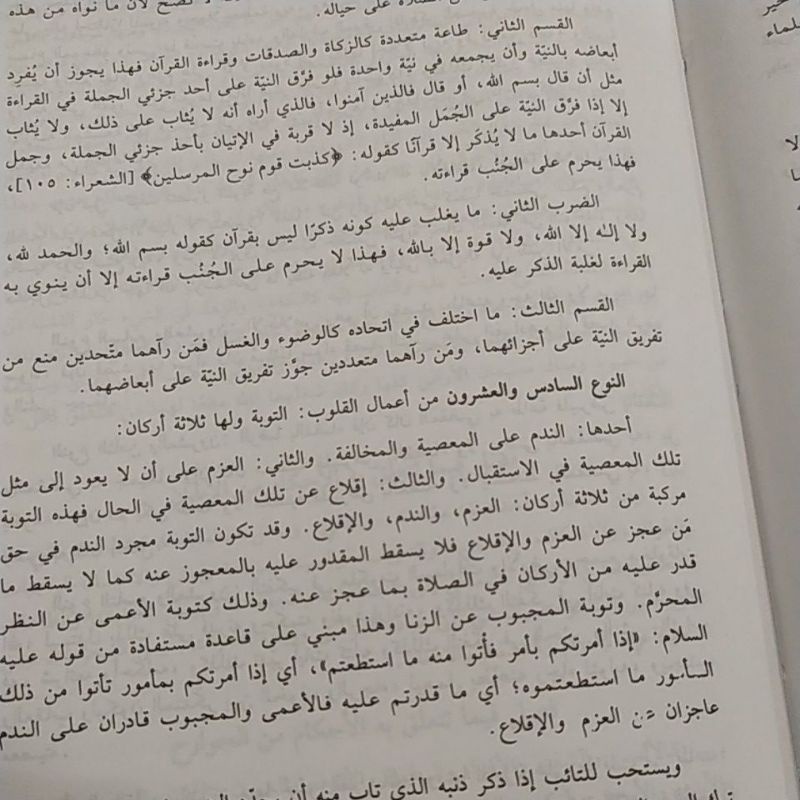 لا تصح لأن ما نواه من هذه
على حياله.
القسم الثاني: طاعة متعددة كالزكاة والصدقات وقراءة القرآن فهذا يجوز أن يُفرِد
أبعاضه بالنيّة وأن يجمعه في نيّة واحدة فلو فرَّق النيّة على أحد جزئي الجملة في القراءة
مثل أن قال بسم الله، أو قال فالذين آمنوا، فالذي أراه أنه لا يُثاب على ذلك، ولا يُثاب
إلا إذا فرَّق النيّة على الجُمَل المفيدة، إذ لا قربة في الإتيان بأحد جزئي الجملة، وجمل
القرآن أحدها ما لا يُذكَر إلا قرآنًا كقوله: ﴿كذبت قوم نوح المرسلين﴾ [الشعراء: ١٠٥]،
فهذا يحرم على الجُنُب قراءته.
الضرب الثاني: ما يغلب عليه كونه ذكرًا ليس بقرآن كقوله بسم الله؛ والحمد لله،
ولا إله إلا الله، ولا قوة إلا بالله، فهذا لا يحرم على الجُنُب قراءته إلا أن ينوي به
القراءة لغلبة الذكر عليه.
القسم الثالث: ما اختلف في اتحاده كالوضوء والغسل فمَن رآهما متّحدين منع من
تفريق النيّة على أجزائهما، ومَن رآهما متعددين جوَّز تفريق النيّة على أبعاضهما.
النوع السادس والعشرون من أعمال القلوب: التوبة ولها ثلاثة أركان:
أحدها: الندم على المعصية والمخالفة. والثاني: العزم على أن لا يعود إلى مثل
تلك المعصية في الاستقبال. والثالث: إقلاع عن تلك المعصية في الحال فهذه التوبة
مركبة من ثلاثة أركان: العزم، والندم، والإقلاع. وقد تكون التوبة مجرد الندم في حق
مَن عجز عن العزم والإقلاع فلا يسقط المقدور عليه بالمعجوز عنه كما لا يسقط ما
قدر عليه من الأركان في الصلاة بما عجز عنه. وذلك كتوبة الأعمى عن النظر
المحرَّم. وتوبة المجبوب عن الزنا وهذا مبني على قاعدة مستفادة من قوله عليه
السلام: «إذا أمرتكم بأمر فأتوا منه ما استطعتم»، أي إذا أمرتكم بمأمور تأتوا من ذلك
المأمور ما استطعتموه؛ أي ما قدرتم عليه فالأعمى والمجبوب قادران على الندم
عاجزان عن العزم والإقلاع.
ويستحب للتائب إذا ذكر ذنبه الذي تاب منه أن
لا